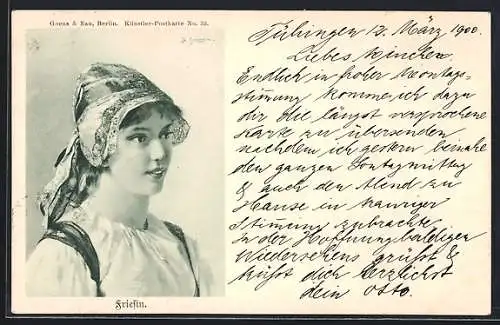 Goens & Nau, Berlin. Künstler-Postkarte No. 32.
Tübingen 12. März 1900.
Liebes Minchen.
Endlich in froher Montags-
stimung komme ich dazu
dir die längst versprochene
Karte zu übersenden
nachdem ich gestern beinahe
den ganzen Sontagmittag
& auch den Abend zu
Hause in trauriger
Stimung zubrachte.
In der Hoffnung baldigen
Wiedersehens grüsst &
küsst dich herzlichst
dein Otto.
Friesin.